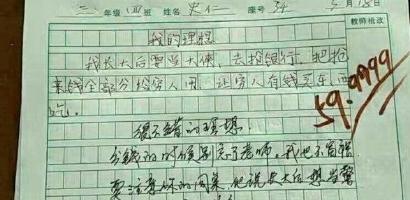 三年级 四班 姓名 史仁 座号 34 5月18日
教师批改
我的理想
我长大后要当大侠,去抢银行,把抢
来钱全部分给穷人用,让穷人有钱买东西
吃。
59.9999
很不错的理想
分钱的时候别忘了老师。我也不富强
要注意你的同桌,他说长大后想当警